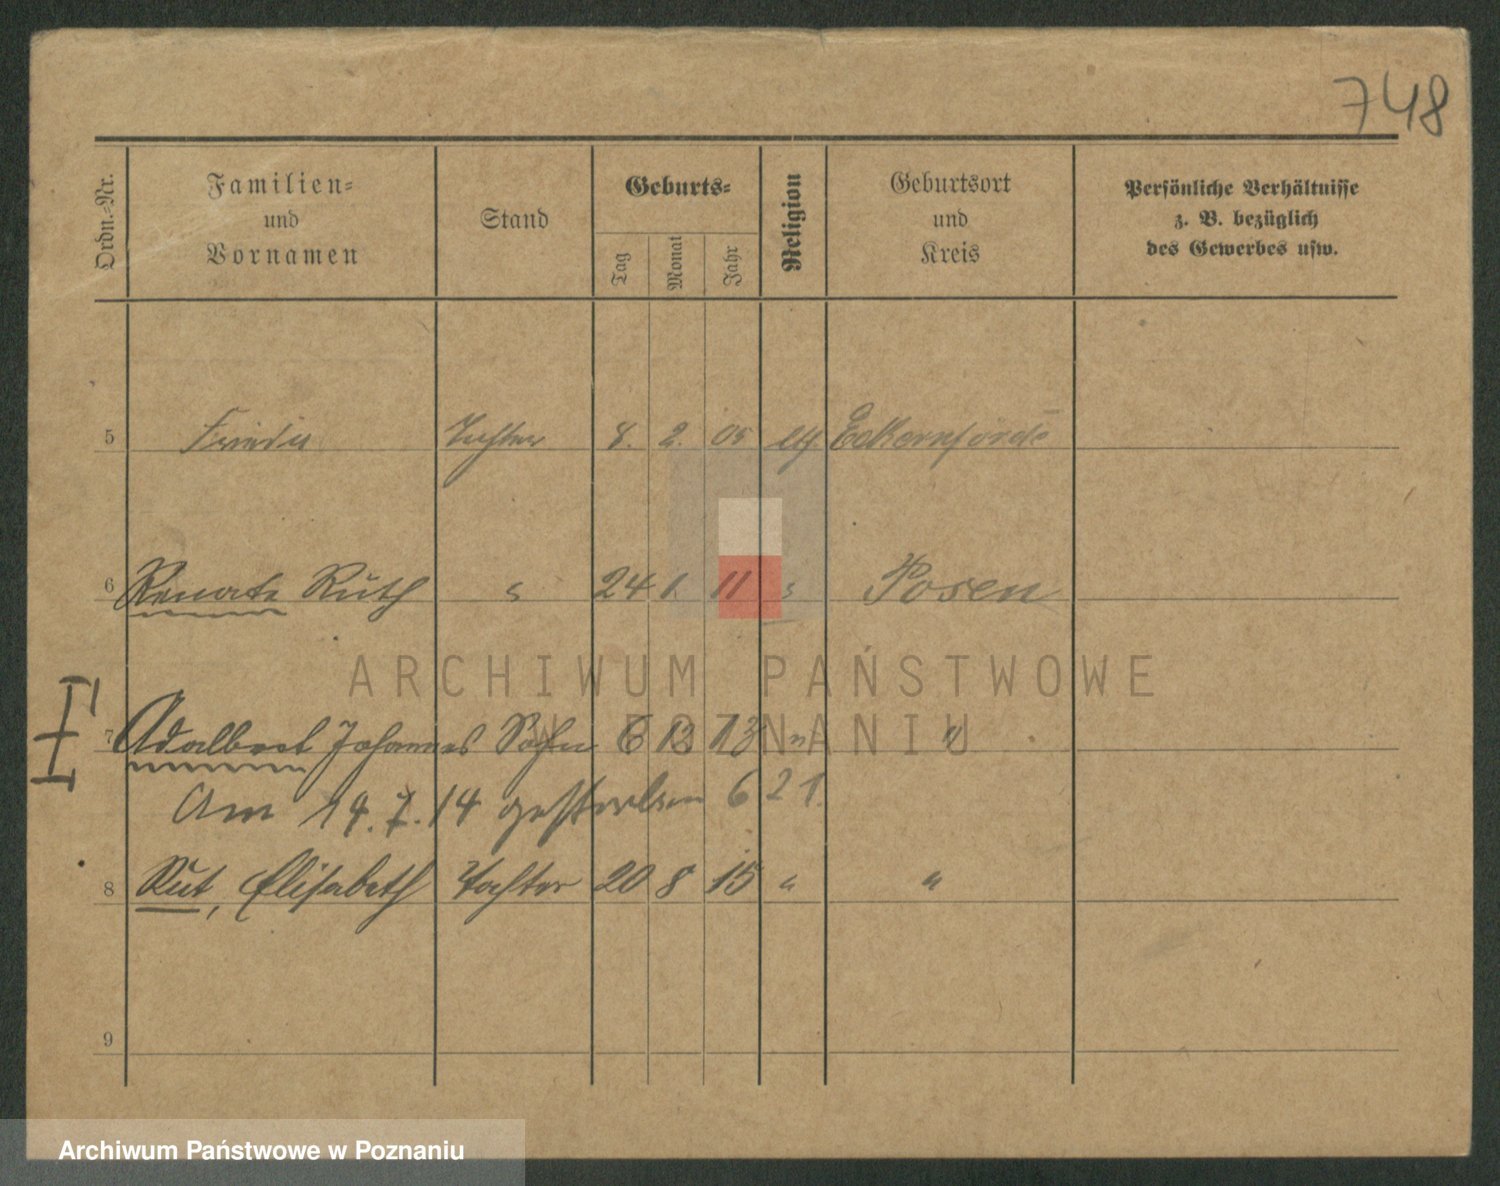 748
Ordn.-Nr. Familien- und Vornamen Stand Geburts- Tag Monat Jahr Religion Geburtsort und Kreis Persönliche Verhältnisse z. B. bezüglich des Gewerbes usw.
5 Frieda Tochter 8. 2. 05 ev. Eckernförde
6 Renate Ruth " 24 1. 11 " Posen
ARCHIWUM PAŃSTWOWE
W POZNANIU
7 Adalbert Johannes Sohn 6 12 13 " "
Am 14.7.14 gestorben 621
8 Rut, Elisabeth Tochter 20 8 15 " "
9
Archiwum Państwowe w Poznaniu